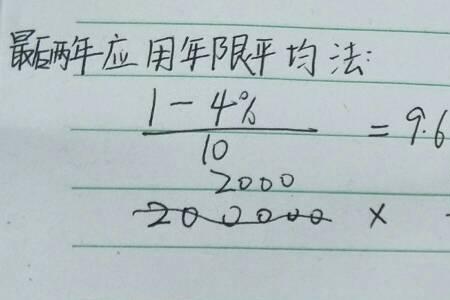 最后两年应用年限平均法:
1-4%
10
= 9.6
2000
200000 ×